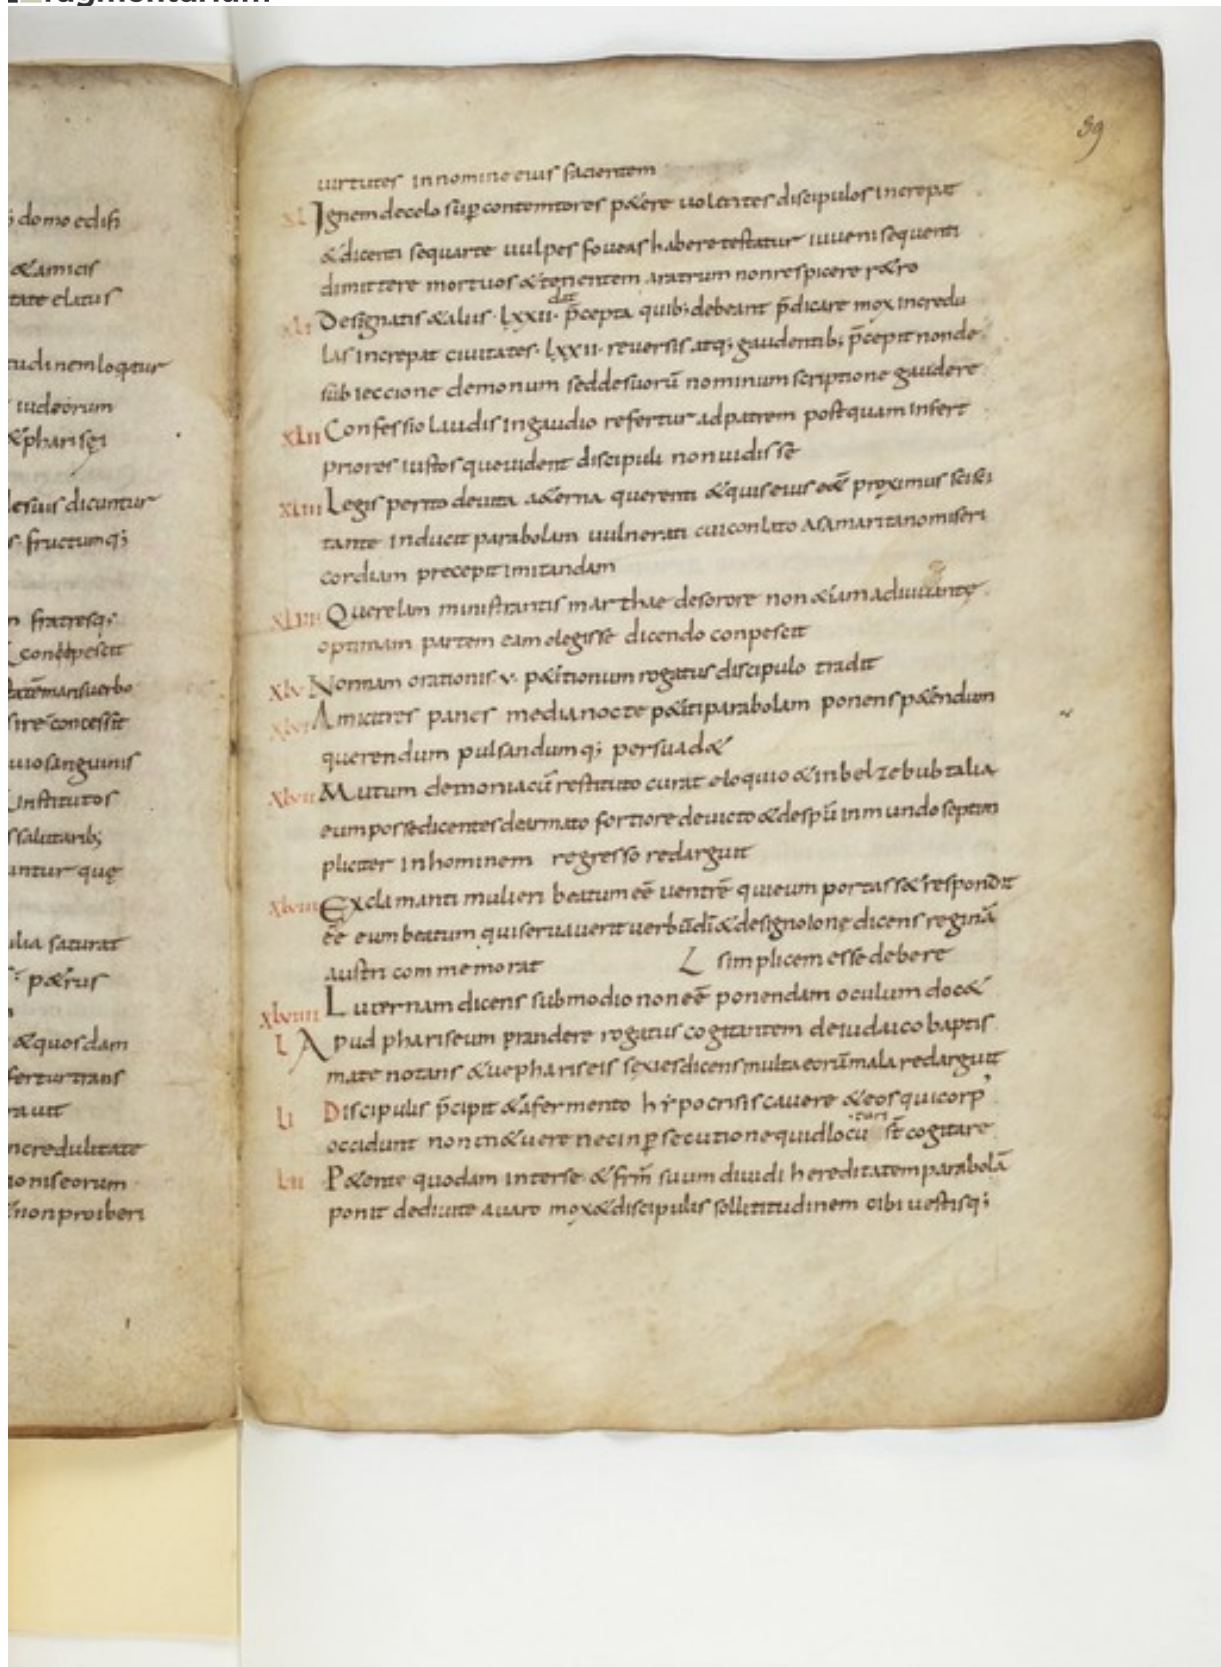 fragmentarium
89
; domo edifi
& amicis
tate elatus
tudinem loqitur
iudeorum
& pharisęi
lesuis dicuntur
fructumq;
fratresq;
conpescit
tatem ansuerbo
sire concessit
uio sanguinis
Institutos
salutarib;
antur quę
ilia saturat
p&rus
& quosdam
fertur trans
rauit
ncredulitate
ionis eorum
non proiberi
uirtutes in nomine eius facientem
XL Ignem de celo sup contemtores p&ere uolentes discipulos increpat
& dicenti sequar te uulpes foueas habere testatur iuueni sequenti
dimittere mortuos & tenentem aratrum non respicere r&ro
XLI Designatis & aliis · LXXII · dat p̄cepta quib; debeant p̄dicare mox incredu
las increpat ciuitates · LXXII · reuersis atq; gaudentib; p̄cepit non de
subieccione demonum sed de suorū nominum scriptione gaudere
XLII Confessio laudis in gaudio refertur ad patrem postquam infert
priores iustos que uident discipuli non uidisse
XLIII Legis perito de uita a&erna querenti & quis eius e&̄ proximus scisci
tante inducit parabolam uulnerati cui conlato a samaritano miseri
cordiam precepit imitandam
XLIIII Querelam ministrantis marthae de sorore non &iam adiuuante
optimam partem eam elegisse dicendo conpescit
XLV Normam orationis · v · p&itionum rogatus discipulo tradit
XLVI Amici tres panes media nocte p&iti parabolam ponens p&endum
querendum pulsandumq; persuad&
XLVII Mutum demoniacū restituto curat eloquio & in belzebub talia
eum posse dicentes de armato fortiore deuicto & de spū inmundo septem
pliciter in hominem regresso redarguit
XLVIII Exclamanti mulieri beatum eē uentrē qui eum portass& respondit
eē eum beatum qui seruauerit uerbū dī & de signo ione dicens reginā
austri commemorat L simplicem esse debere
XLVIIII Lucernam dicens sub modio non eē ponendam oculum doc&
L Apud phariseum prandere rogatus cogitantem de iudaico baptis
mate notans & ue phariseis sexies dicens multa eorū mala redarguit
LI Discipulis p̄cipit & a fermento hypocrisis cauere & eos qui corp'
occidunt non m&uere nec in p̱secutione quid locuturi st̄ cogitare
LII P&ente quodam inter se & frm̄ suum diuidi hereditatem parabolā
ponit de diuite auaro mox & discipulis sollititudinem cibi uestisq;